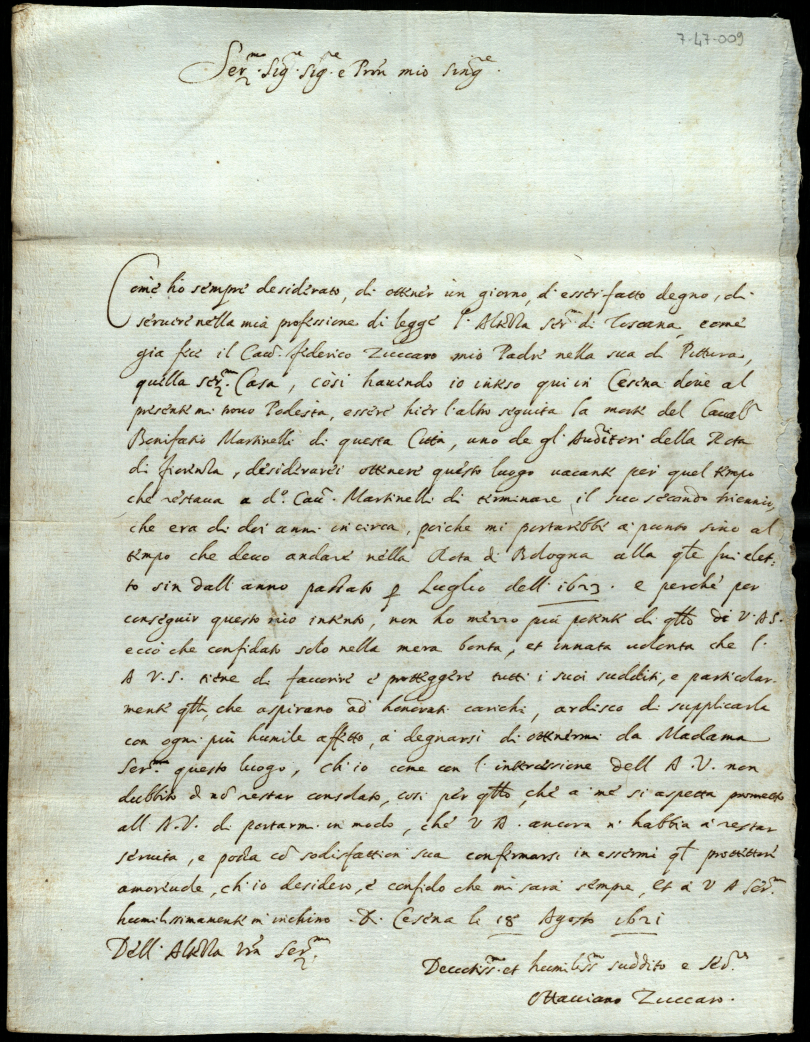 7-47-009
Ser.mo Sig.re Sig.re e Pron mio sing.re
Come ho sempre desiderato, di ottener un giorno, d'esser fatto degno, di
servire nella mia professione di legge l'Altezza Ser.ma di Toscana, come
gia fece il Cav. federico Zuccaro mio Padre nella sua di Pittura,
quella Ser.ma Casa, così havendo io inteso qui in Cesena dove al
presente mi trovo Podestà, essere hier l'altro seguita la morte del Caval.r
Bonifatio Martinelli di questa Città, uno de gl'Auditori della Rota
di fiorenza, desiderarei ottenere questo luogo vacante per quel tempo
che restava a d.o Cav. Martinelli di terminare il suo secondo triennio,
che era di doi anni in circa, poiche mi portarebbe a punto sino al
tempo che devo andare nella Rota di Bologna alla q.le fui elet-
to sin dall'anno passato p Luglio dell' 1623. e perche per
conseguir questo mio intento, non ho mezzo più potente di q.llo di V.A.S.
ecco che confidato solo nella mera bontà, et innata volontà che l'
A.V.S. tiene di favorire e proteggere tutti i suoi sudditi, e particolar-
mente q.lli, che aspirano ad honorati carichi, ardisco di supplicarla
con ogni più humile affetto, a degnarsi di ottenermi da Madama
Ser.ma questo luogo, ch'io come con l'intercessione dell'A.V. non
dubbito di nō restar consolato, così per q.llo, che a me si aspetta prometto
all'A.V. di portarmi in modo, che V.A. ancora n'habbia a restar
servita, e possa cō sodisfattion sua confirmarsi in essermi q.l protettore
amorevole, ch'io desidero, e confido che mi sarà sempre, et a V.A. Ser.ma
humilissimamente m'inchino. Di Cesena li 18 Agosto 1621
Dell'Altezza Vra Ser.ma
Devotiss.o et humiliss.o suddito e Ser.re
Ottaviano Zuccaro.